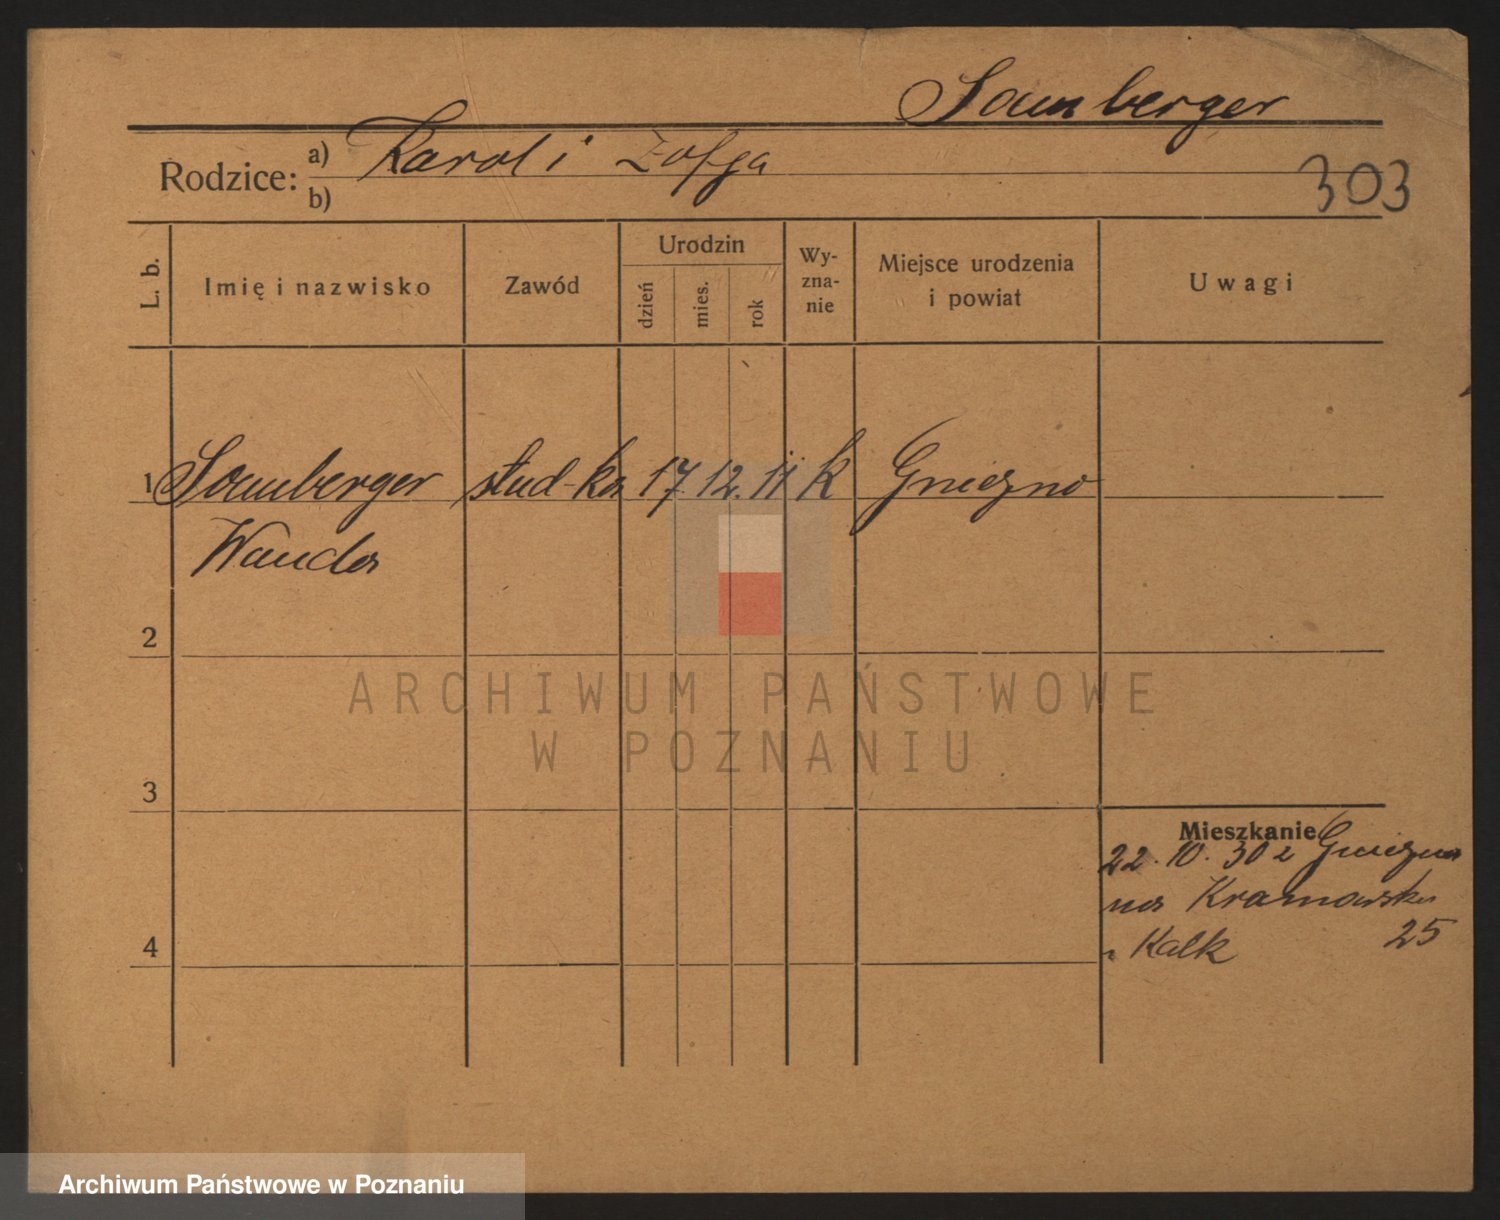 Samberger
Rodzice: a) Karol i Zofja
b)
303
L. b. Imię i nazwisko Zawód Urodzin dzień mies. rok Wy-zna-nie Miejsce urodzenia i powiat Uwagi
1 Samberger stud-ka 17. 12. 11 k Gniezno
Wanda
2
3
4
Mieszkanie
22. 10. 30 z Gniezna
na Kramarska
25
Kalk
ARCHIWUM PAŃSTWOWE
W POZNANIU
Archiwum Państwowe w Poznaniu